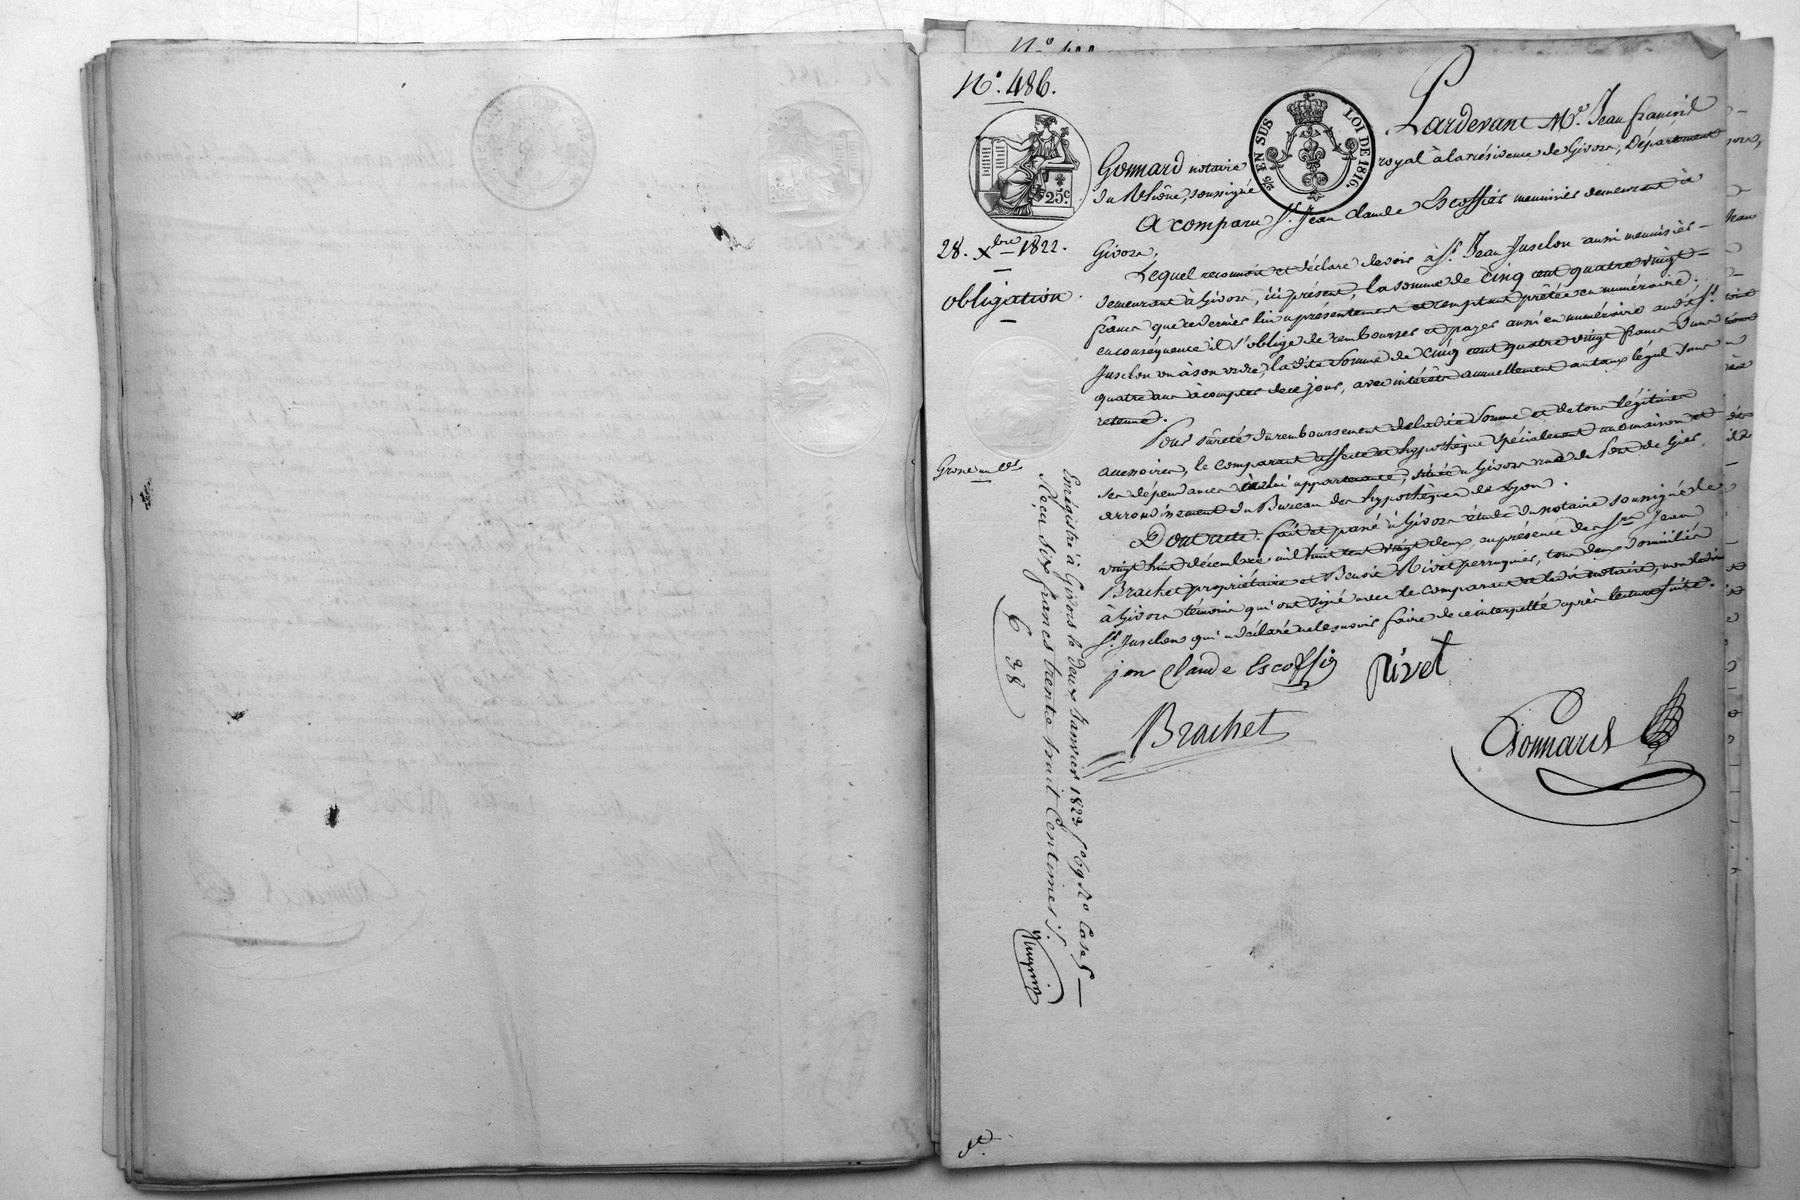 N°. 486.
25 EN SUS
LOI DE 1816.
25c.
Pardevant Me. Jean françois
Gonnard notaire royal à la résidence de Givors, Département
du Rhône, soussigné
A comparu Sr. Jean Claude Escoffier meunisier demeurant à
Givors,
28. Xbre 1822.
obligation.
Lequel reconnoit et déclare devoir à Sr. Jean Jusclon aussi meunisier
demeurant à Givors, ici présent, la somme de cinq cent quatre vingt
francs que ce dernier lui a présentement et comptant prêtée en numéraire;
en conséquence il s'oblige de rembourser et payer aussi en numéraire audit Sr.
Jusclon ou a son ordre, ladite somme de cinq cent quatre vingt francs dans
quatre ans à compter de ce jour, avec intérêts annuellement au taux légal sans
retenue.
Pour sûreté du remboursement de ladite somme et de tous légitimes
accessoires, le comparant affecte et hypothèque spécialement une maison et
ses dépendances à lui appartenante, située à Givors rue du Port de Gier,
arrondissement du Bureau des hypothèques de Lyon.
Grosse au
Dont acte. fait et passé à Givors étude du notaire soussigné le
vingt huit décembre mil huit cent vingt deux, en présence de Srs. Jean
Brachet propriétaire et Benoit Rivet perruquier, tous deux domiciliés
à Givors témoins qui ont signé avec le comparant et ledit notaire, non ledit
Sr. Jusclon qui a déclaré ne le savoir faire de ce interpellé après lecture faite.
jan Claude Escoffie
Rivet
Brachet
Gonnard
Enrégistré à Givors le deux Janvier 1823 fo. 69 Ro Case 5
Reçu six francs trente huit Centimes
6 38